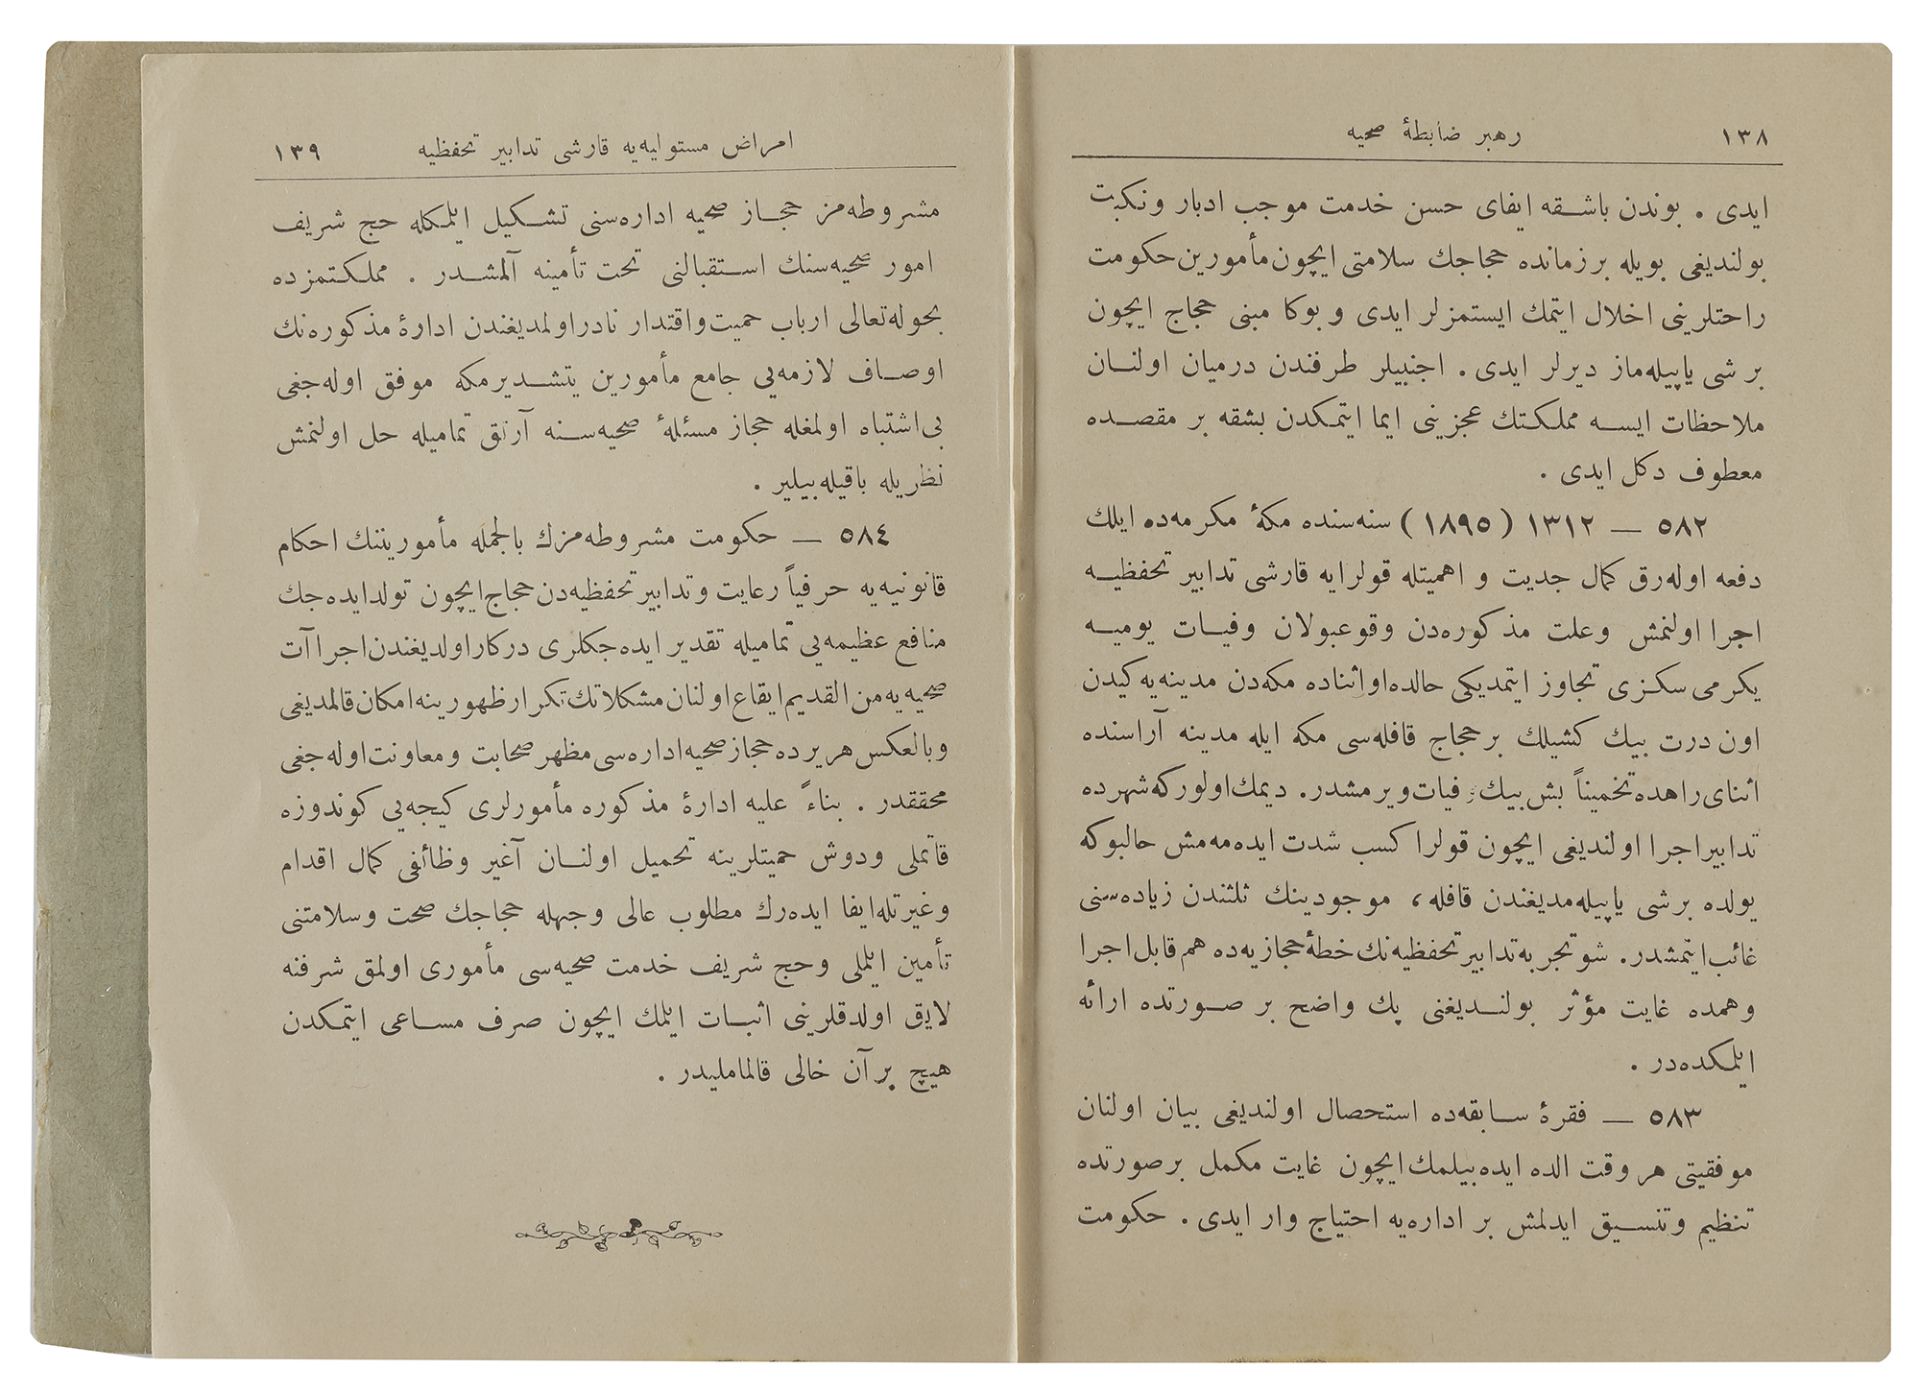 ١٣٨ رهبر ضابطهٔ صحیه
ایدی . بوندن باشقه ایفای حسن خدمت موجب ادبار ونکبت
بولندیغی بویله برزمانده حجاجك سلامتی ایچون مأمورین حکومت
راحتلرینی اخلال ایتمك ایستمزلر ایدی و بوکا مبنی حجاج ایچون
برشی یاپیله‌ماز دیرلر ایدی . اجنبیلر طرفندن درمیان اولنان
ملاحظات ایسه مملکتك عجزینی ایما ایتمکدن بشقه بر مقصده
معطوف دکل ایدی .
٥٨٢ — ١٣١٢ (١٨٩٥) سنه‌سنده مکهٔ مکرمه‌ده ایلك
دفعه اوله‌رق کمال جدیت و اهمیتله قولرایه قارشی تدابیر تحفظیه
اجرا اولنمش وعلت مذکوره‌دن وقوعبولان وفیات یومیه
یکرمی سکزی تجاوز ایتمدیکی حالده اواثناده مکه‌دن مدینه‌یه کیدن
اون درت بیك کشیلك برحجاج قافله‌سی مکه ایله مدینه آراسنده
اثنای راهده تخمیناً بش بیك وفیات ویرمشدر. دیمك اولورکه شهرده
تدابیر اجرا اولندیغی ایچون قولرا کسب شدت ایده‌مه‌مش حالبوکه
یولده برشی یاپیله‌مدیغندن قافله، موجودینك ثلثندن زیاده‌سنی
غائب ایتمشدر. شو تجربه تدابیر تحفظیه‌نك خطهٔ حجازیه‌ده هم قابل اجرا
وهمده غایت مؤثر بولندیغنی پك واضح بر صورتده ارائه
ایلمکده‌در .
٥٨٣ — فقرهٔ سابقه‌ده استحصال اولندیغی بیان اولنان
موفقیتی هر وقت الده ایده‌بیلمك ایچون غایت مکمل برصورتده
تنظیم وتنسیق ایدلمش بر اداره‌یه احتیاج وار ایدی . حکومت
امراض مستولیه‌یه قارشی تدابیر تحفظیه ١٣٩
مشروطه‌مز حجاز صحیه اداره‌سنی تشکیل ایلمکله حج شریف
امور صحیه‌سنك استقبالنی تحت تأمینه آلمشدر . مملکتمزده
بحوله تعالی ارباب حمیت واقتدار نادر اولمدیغندن ادارهٔ مذکوره‌نك
اوصاف لازمه‌یی جامع مأمورین یتشدیرمکه موفق اوله‌جغی
بی‌اشتباه اولمغله حجاز مسئلهٔ صحیه‌سنه آرتق تمامیله حل اولنمش
نظریله باقیله‌بیلیر .
٥٨٤ — حکومت مشروطه‌مزك بالجمله مأموریننك احکام
قانونیه‌یه حرفیاً رعایت وتدابیر تحفظیه‌دن حجاج ایچون تولد ایده‌جك
منافع عظیمه‌یی تمامیله تقدیر ایده‌جکلری درکار اولدیغندن اجراآت
صحیه‌یه من القدیم ایقاع اولنان مشکلاتك تکرار ظهورینه امکان قالمدیغی
وبالعکس هر یرده حجاز صحیه اداره‌سی مظهر صحابت ومعاونت اوله‌جغی
محققدر . بناءً علیه ادارهٔ مذکوره مأمورلری کیجه‌یی کوندوزه
قاتملی ودوش حمیتلرینه تحمیل اولنان آغیر وظائفی کمال اقدام
وغیرتله ایفا ایده‌رك مطلوب عالی وجهله حجاجك صحت وسلامتنی
تأمین ایلملی وحج شریف خدمت صحیه‌سی مأموری اولمق شرفنه
لایق اولدقلرینی اثبات ایلمك ایچون صرف مساعی ایتمکدن
هیچ برآن خالی قالماملیدر .